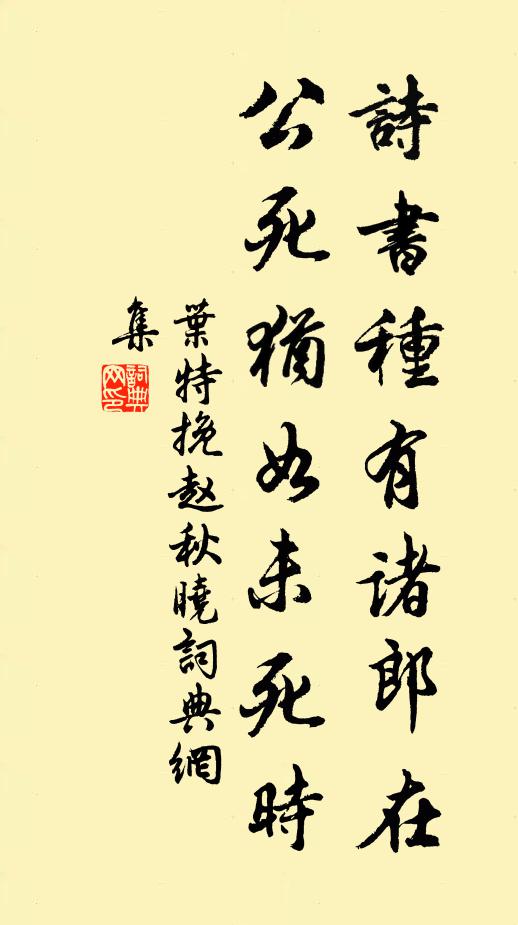 詩書種有诸郎在
公死猶如未死時
葉特挽赵秋曉詞典網
集
詞典網印